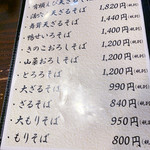 天ざるそば 1,820円(税別)
天ざるそば 1,440円(税別)
鴨せいろそば 1,400円(税別)
きのこおろしそば 1,200円(税別)
山菜おろしそば 1,200円(税別)
とろろそば 1,200円(税別)
大ざるそば 990円(税別)
ざるそば 840円(税別)
大もりそば 950円(税別)
もりそば 800円(税別)